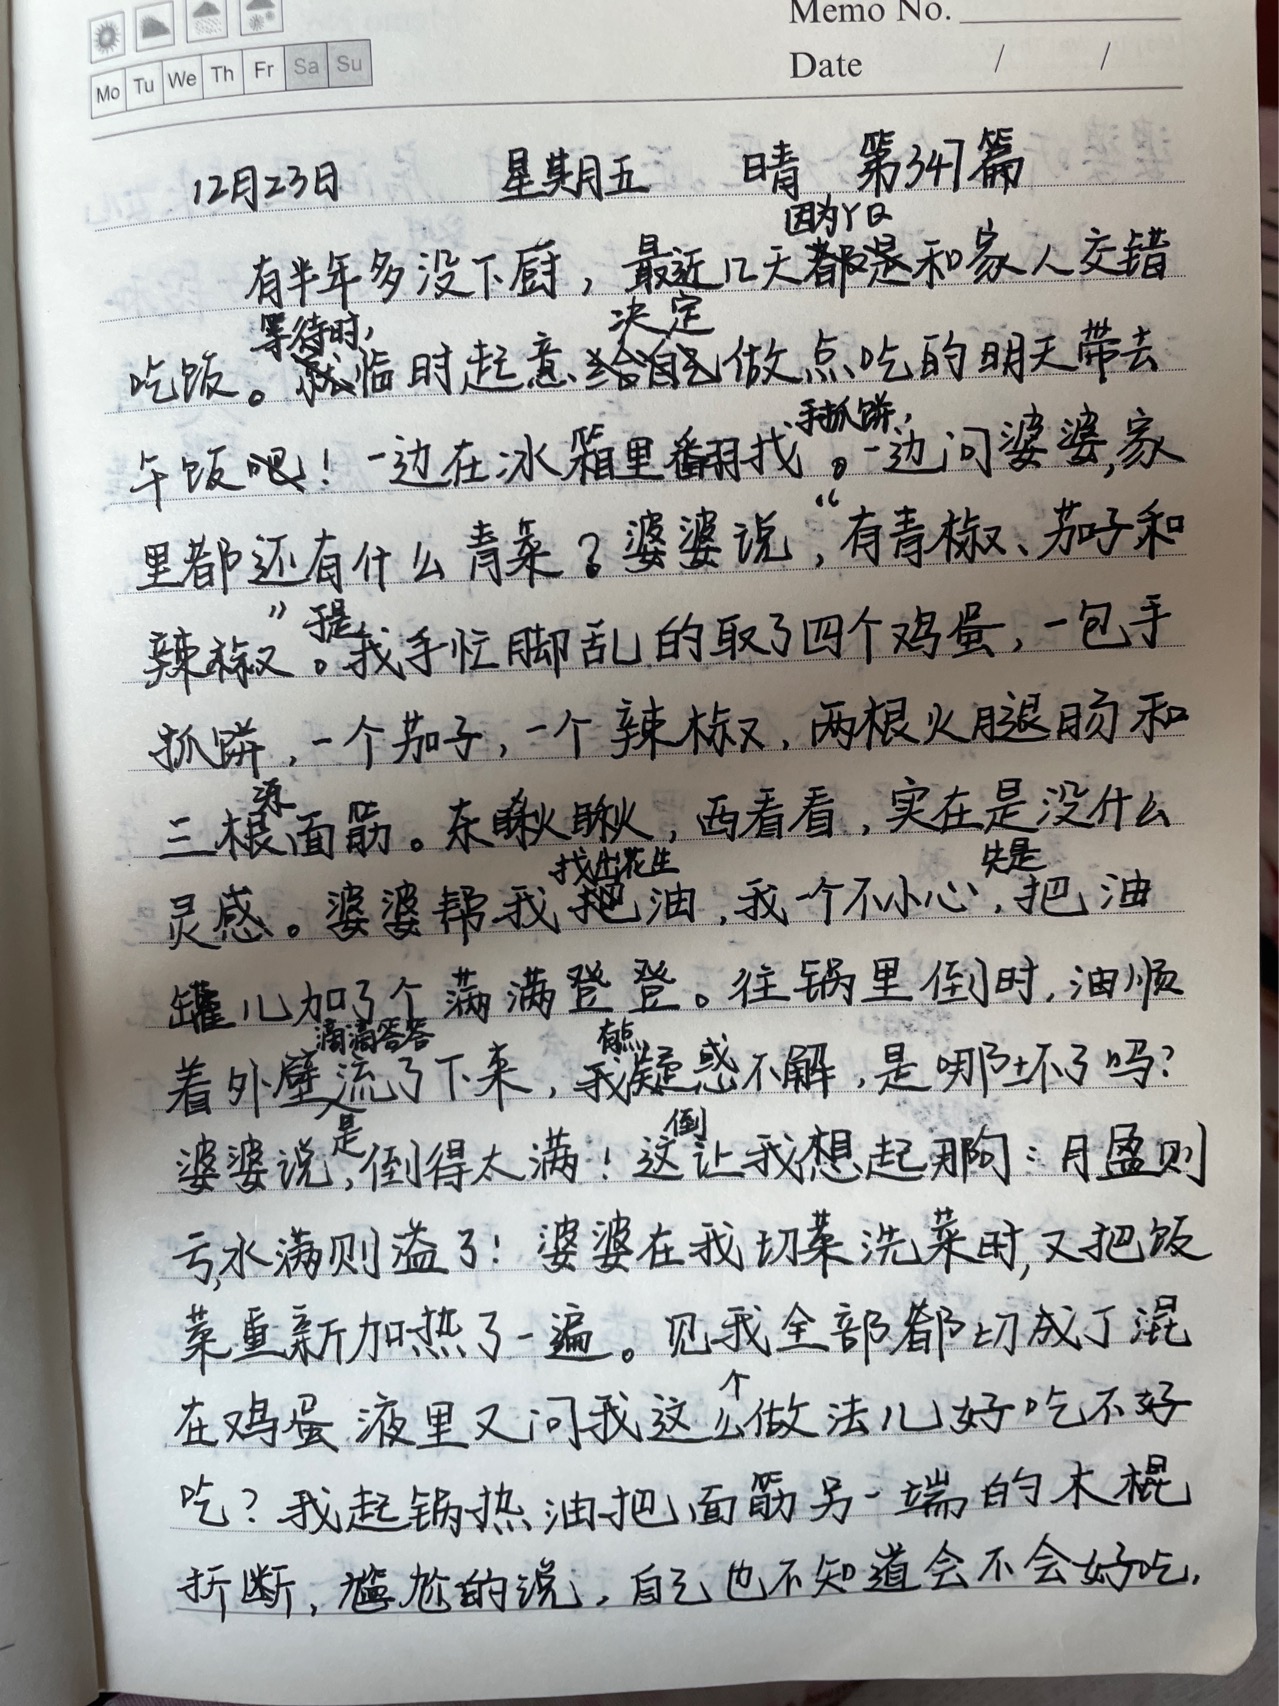 Memo No.
Mo Tu We Th Fr Sa Su
Date / /
12月23日 星期五 晴 第347篇
因为YQ
有半年多没下厨，最近几天都是和家人交错
等待时， 决定
吃饭。我临时起意给自己做点吃的明天带去
手抓饼，
午饭吧！一边在冰箱里翻找。一边问婆婆，家
里都还有什么青菜？婆婆说，“有青椒、茄子和
于是
辣椒”。我手忙脚乱的取了四个鸡蛋，一包手
抓饼，一个茄子，一个辣椒，两根火腿肠和
三根面筋。东瞅瞅，西看看，实在是没什么
找出花生 先是
灵感。婆婆帮我把油，我一个不小心，把油
罐儿加了个满满登登。往锅里倒时，油顺
滴滴答答 有点
着外壁流了下来，我疑惑不解，是哪坏了吗？
是 倒
婆婆说，倒得太满！这让我想起那句：月盈则
亏，水满则溢了！婆婆在我切菜洗菜时，又把饭
菜重新加热了一遍。见我全部都切成丁混
个
在鸡蛋液里又问我这么做法儿好吃不好
吃？我起锅热油把面筋另一端的木棍
折断，尴尬的说，自己也不知道会不会好吃，